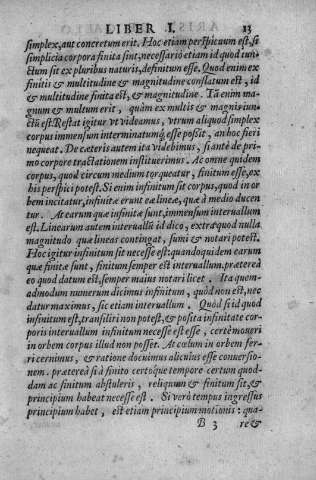 LIBER I. 13
simplex, aut concretum erit. Hoc etiam perspicuum est, si
simplicia corpora finita sint, necessariò etiam id quod iun-
ctum sit ex pluribus naturis, definitum esse. Quod enim ex
finitis & multitudine & magnitudine conflatum est, id
& multitudine finita est, & magnitudine. Tā enim ma-
gnum & multum erit, quàm ex multis & magnis iun-
ctū est. Restat igitur vt videamus, vtrum aliquod simplex
corpus immensum interminatumq́; esse possit, an hoc fieri
nequeat. De cæteris autem ita videbimus, si antè de pri-
mo corpore tractationem instituerimus. Ac omne quidem
corpus, quod circum medium torqueatur, finitum esse, ex
his perspici potest. Si enim infinitum sit corpus, quod in or
bem incitatur, infinitæ erunt eæ lineæ, quæ à medio ducen
tur. At earum quæ infinitæ sunt, immensum interuallum
est. Linearum autem interuallū id dico, extra quod nulla
magnitudo quæ lineas contingat, sumi & notari potest.
Hoc igitur infinitum sit necesse est: quandoquidem earum
quæ finitæ sunt, finitum semper est interuallum. præterea
eo quod datum est, semper maius notari licet. Ita quem-
admodum numerum dicimus infinitum, quòd non est, nec
datur maximus, sic etiam interuallum. Quòd si id quod
infinitum est, transiliri non potest, & posita infinitate cor-
poris interuallum infinitum necesse est esse, certè moueri
in orbem corpus illud non posset. At cœlum in orbem fer-
ri cernimus, & ratione docuimus alicuius esse conuersio-
nem. præterea si à finito certoque tempore certum quod-
dam ac finitum abstuleris, reliquum & finitum sit, &
principium habeat necesse est. Si verò tempus ingressus
principium habet, est etiam principium motionis: qua-
B 3 re &